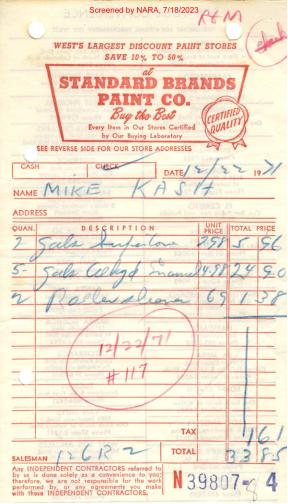 Screened by NARA, 7/18/2023
REM
check
WEST'S LARGEST DISCOUNT PAINT STORES
SAVE 10% TO 50%
at
STANDARD BRANDS
PAINT CO.
Buy the Best
Every Item in Our Stores Certified
by Our Buying Laboratory
CERTIFIED QUALITY
SEE REVERSE SIDE FOR OUR STORE ADDRESSES
CASH CHECK DATE 12/22 1971
NAME MIKE KASH
ADDRESS
QUAN. DESCRIPTION UNIT PRICE TOTAL PRICE
2 gals 298 5 96
5- gals Enamel 4.98 24 90
2 Roller 69 1 38
12/22/71
#117
TAX 161
SALESMAN 126R2 TOTAL 33 85
Any INDEPENDENT CONTRACTORS referred to
by us is done solely as a convenience to you;
therefore, we are not responsible for the work
performed by, or any agreements you make
with those INDEPENDENT CONTRACTORS.
N 39807-4